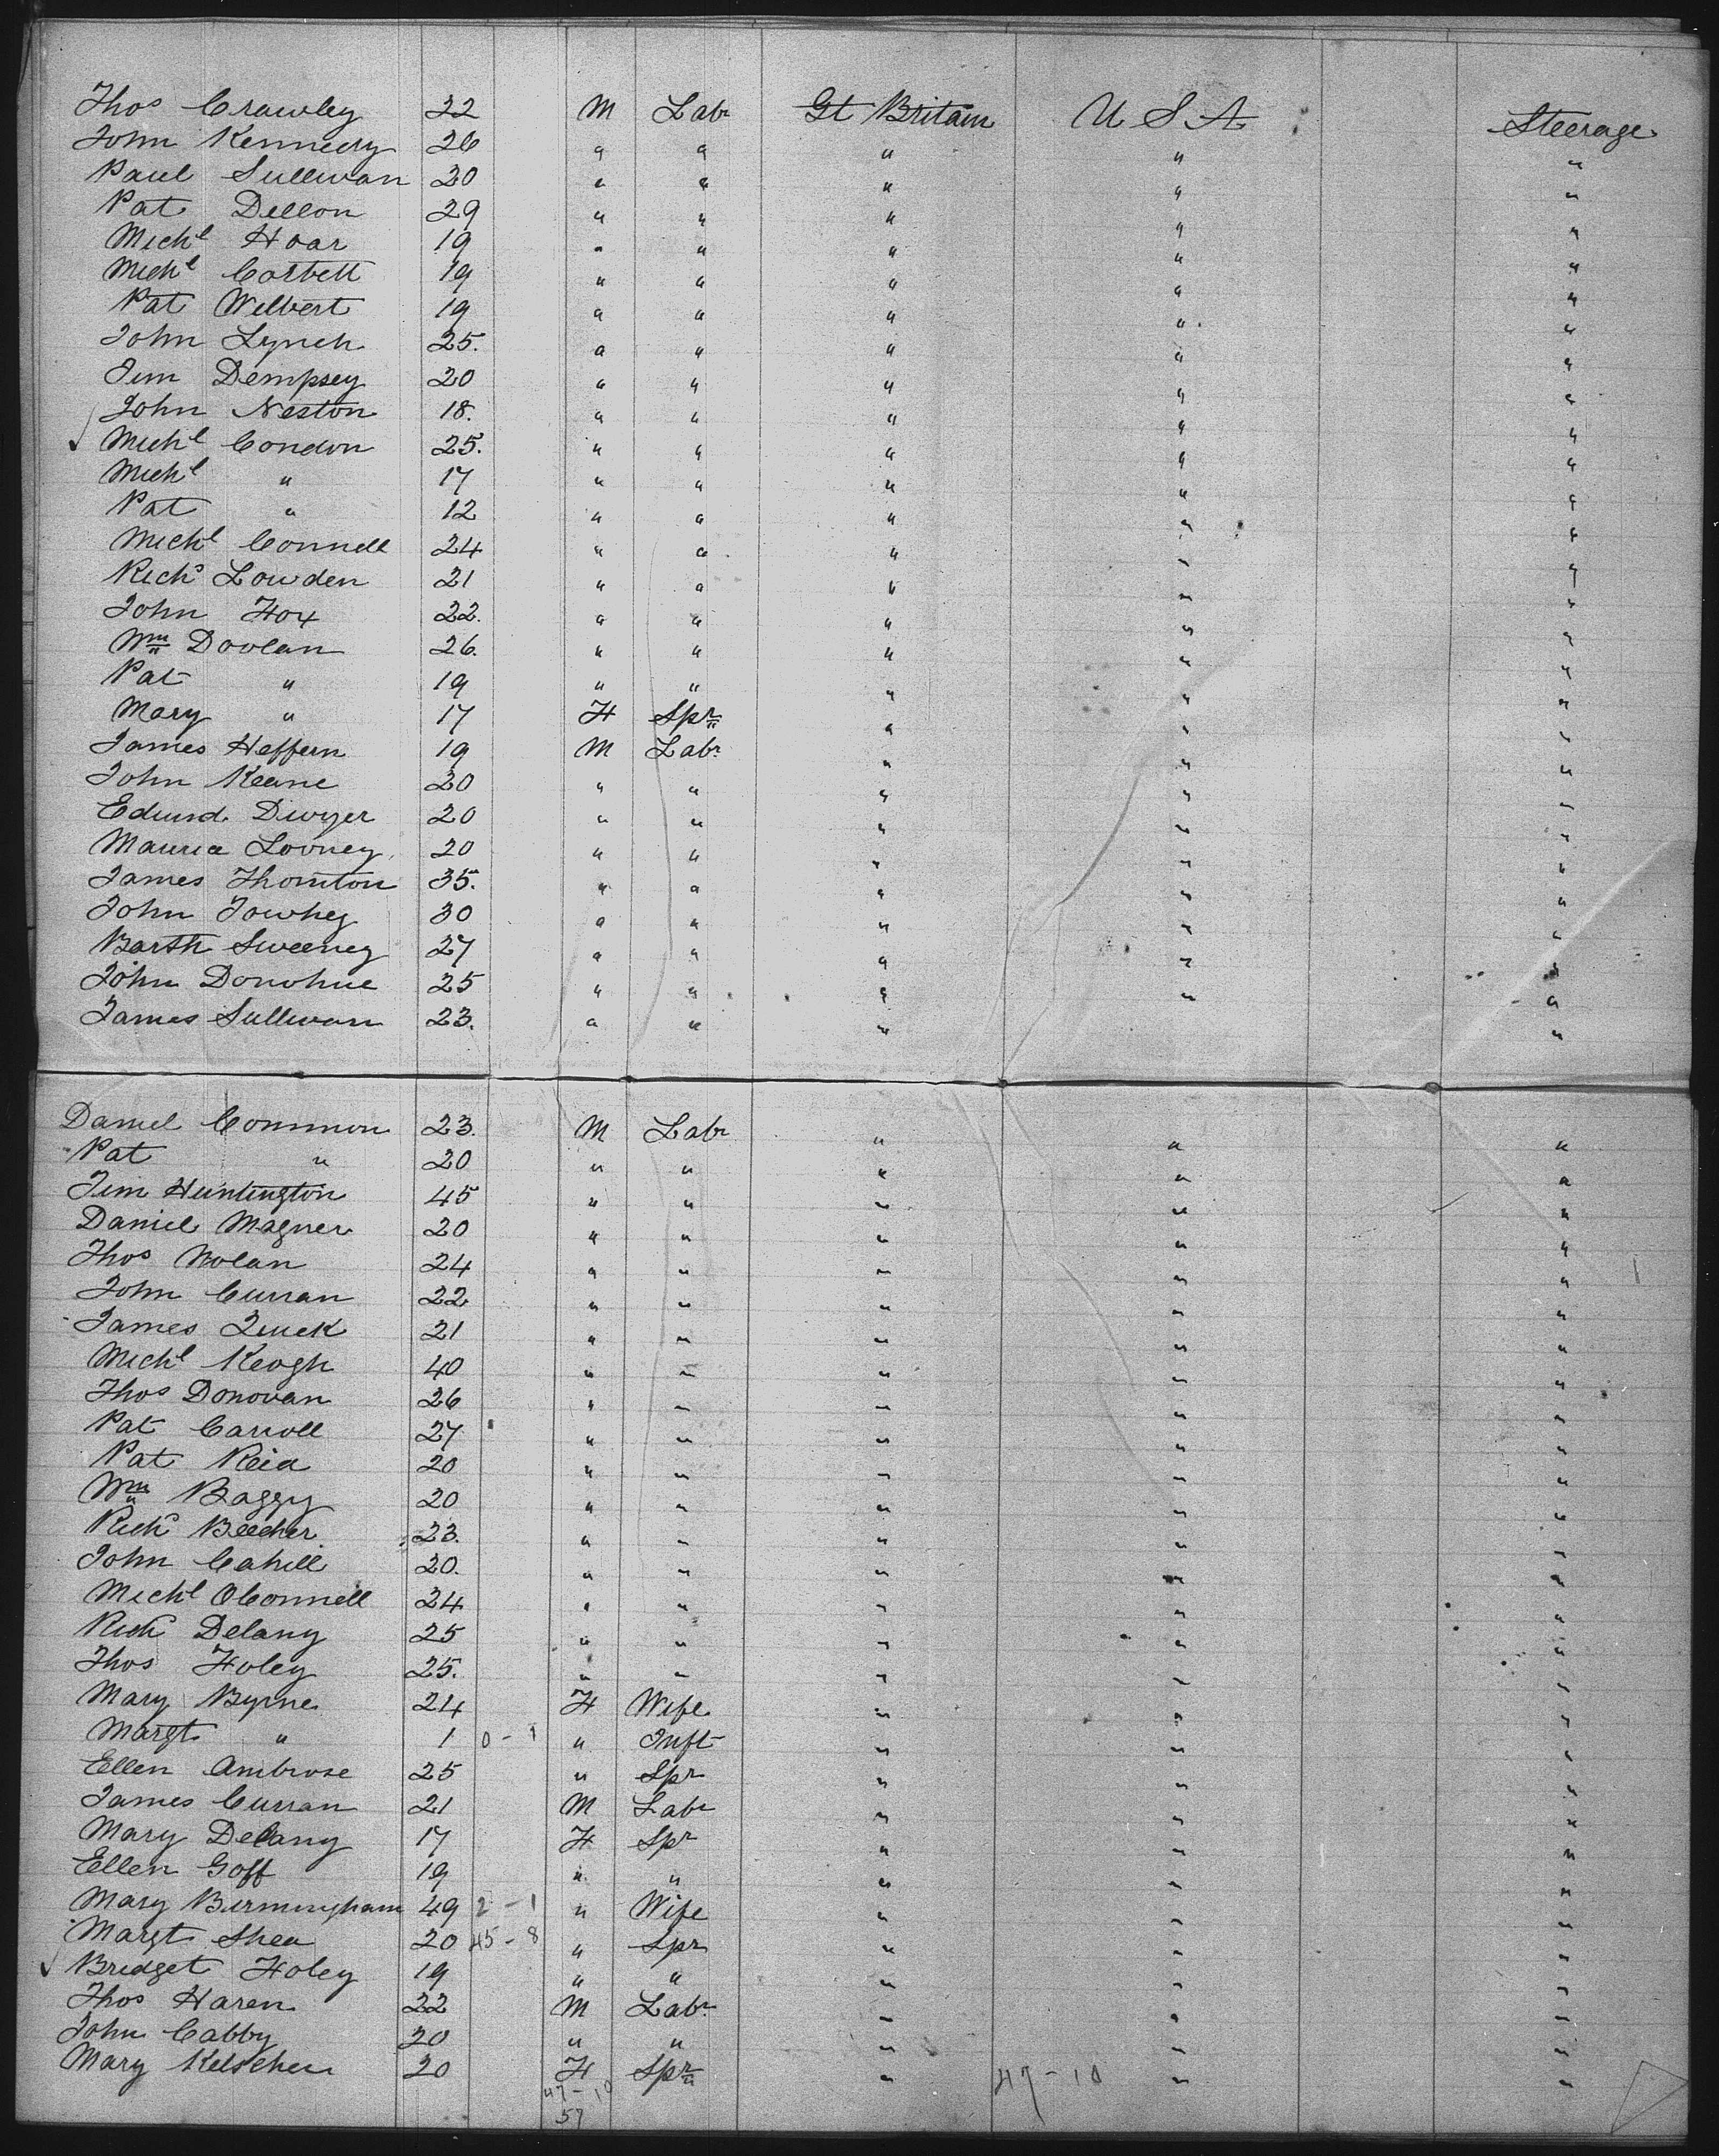 Thos Crawley 22 M Labr Gt Britain U S A Steerage
John Kennedy 26 " " " " "
Paul Sullivan 20 " " " " "
Pat Dillon 29 " " " " "
Michl Hoar 19 " " " " "
Michl Corbett 19 " " " " "
Pat Wilbert 19 " " " " "
John Lynch 25. " " " " "
Jim Dempsey 20 " " " " "
John Neston 18. " " " " "
Michl Condon 25. " " " " "
Michl " 17 " " " " "
Pat " 12 " " " " "
Michl Connell 24 " " " " "
Richd Lowden 21 " " " " "
John Fox 22. " " " " "
Wm Doolan 26. " " " " "
Pat " 19 " " " " "
Mary " 17 F Spr " " "
James Heffern 19 M Labr " " "
John Keane 20 " " " " "
Edmd. Dwyer 20 " " " " "
Maurice Looney 20 " " " " "
James Thornton 35. " " " " "
John Towhey 30 " " " " "
Barth Sweeney 27 " " " " "
John Donohue 25 " " " " "
James Sullivan 23. " " " "
Daniel Common 23. M Labr " " "
Pat " 20 " " " " "
Jim Huntington 45 " " " " "
Daniel Magner 20 " " " " "
Thos Nolan 24 " " " " "
John Curran 22 " " " " "
James Quick 21 " " " " "
Michl Keogh 40 " " " " "
Thos Donovan 26 " " " " "
Pat Carroll 27 " " " " "
Pat Reid 20 " " " " "
Wm Baggy 20 " " " " "
Richd Beecher 23. " " " " "
John Cahill 20. " " " " "
Michl OConnell 24 " " " " "
Richd Delany 25 " " " " "
Thos Foley 25. " " " " "
Mary Byrne 24 F Wife " " "
Margt " 1 0 - 1 " Inft " " "
Ellen Ambrose 25 " Spr " " "
James Curran 21 M Labr " " "
Mary Delany 17 F Spr " " "
Ellen Goff 19 " " " " "
Mary Birmingham 49 2 - 1 " Wife " " "
Margt Shea 20 45 - 8 " Spr " " "
Bridget Foley 19 " " " " "
Thos Haren 22 M Labr " " "
John Cabby 20 " " " " "
Mary Kelscher 20 F Spr " " "
47 - 10 47 - 10
57